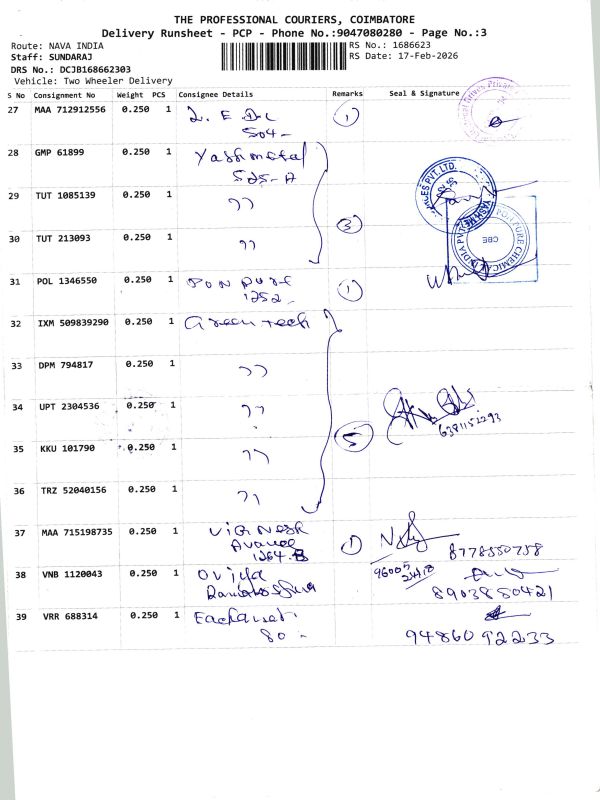 THE PROFESSIONAL COURIERS, COIMBATORE
Delivery Runsheet - PCP - Phone No.:9047080280 - Page No.:3
Route: NAVA INDIA
RS No.: 1686623
Staff: SUNDARAJ
RS Date: 17-Feb-2026
DRS No.: DCJB168662303
Vehicle: Two Wheeler Delivery
S No Consignment No Weight PCS Consignee Details Remarks Seal & Signature
27 MAA 712912556 0.250 1 1
504-
28 GMP 61899 0.250 1 Yashmetal
525-A
29 TUT 1085139 0.250 1 ”
3
30 TUT 213093 0.250 1 ”
31 POL 1346550 0.250 1 1
1252
32 IXM 509839290 0.250 1 Greentech
33 DPM 794817 0.250 1 ”
34 UPT 2304536 0.250 1 ”
6381152293
35 KKU 101790 0.250 1 ” 5
36 TRZ 52040156 0.250 1 ”
37 MAA 715198735 0.250 1 Vignesh 1
1264-B 8778550758
38 VNB 1120043 0.250 1 Oviya
8903880421
39 VRR 688314 0.250 1
80 - 9486092233
PVT.LTD.
YASH ME
CBE